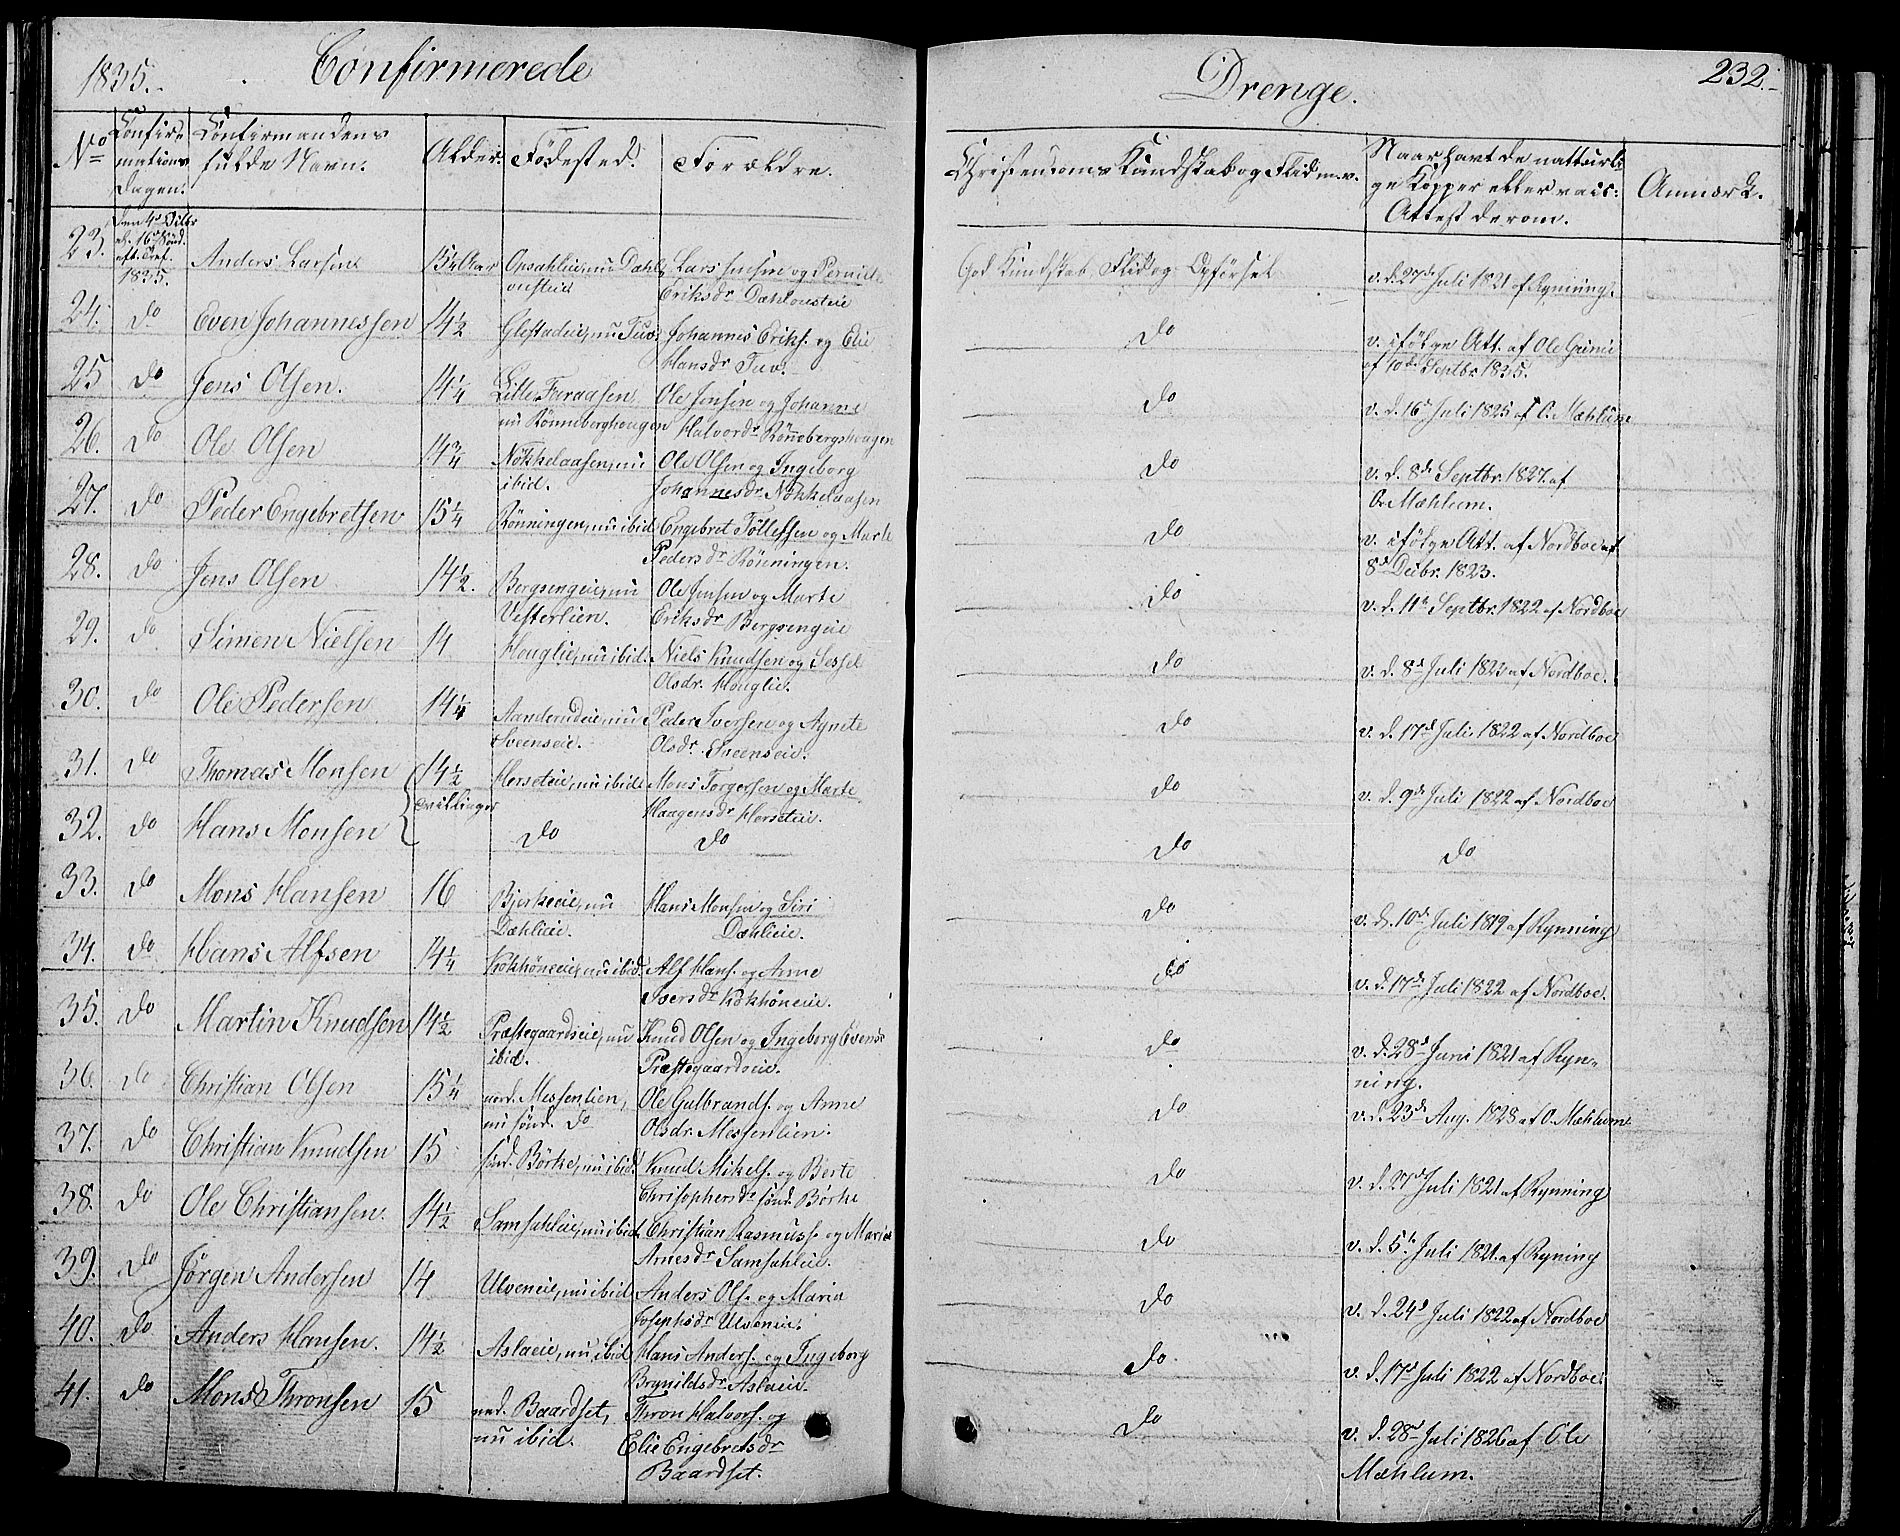 1835.
Confirmerede
Drenge.
232.
No
Confir-
mations
Dagen.
Confirmandens
fulde Navn.
Alder.
Fødested.
Forældre.
Christendoms Kundskab og Flid m.v.
Naar havt de natturli
ge Kopper eller vacc:
Attest derom.
Anmærk.
23. den 4de Octbr
el. 16d Sönd.
eft. Tref.
1835.
Anders Larsen 15½ Aar Opsahleie, nu Dæhl- Lars Jensen og Pernil
onsteie Eriksdr Dæhlonsteie
God Kundskab, Flid og Opførsel v. d. 27de Juli 1821 af Rynning.
24. do Even Johannessen 14½ Glestadeie, nu Tuv. Johannes Eriks. og Elie
Hansdr Tuv.
do v. ifölge Att. af Ole Grimi
af 10de Septbr 1835.
25 do Jens Olsen. 14¼ Lille Furaasen, Ole Jensen og Johanne
nu Rönneberghougen Halvordr Rönnebergshougen
do v. d. 16d Juli 1825 af O. Mæhlum
26. do Ole Olsen 14¾ Nökkelaasen, nu Ole Olsen og Ingeborg
ibid. Johannesdr Nökkelaasen
do v. d. 8de Septbr. 1827. af
O. Mæhlum.
27. do Peder Engebretsen 15¼ Rönningen, nu ibid Engebret Tollefsen og Marte
Pedersdr Rönningen.
do v. ifölge Att. af Nordboe af
8d Decbr. 1823.
28. do Jens Olsen 14½. Bergsengeie, nu Ole Jensen og Marte
Vesterlien. Eriksdr Bergsengeie
do v. d. 11te Septbr. 1822 af Nordboe
29. do Simen Nielsen 14 Houglie, nu ibid. Niels Knudsen og Sessel
Olsdr. Houglie.
do v. d. 8d Juli 1822 af Nordboe.
30. do Ole Pedersen 14¼ Aanderudeie, nu Peder Iversen og Agnete
Sveenseie. Olsdr. Sveenseie.
do v. d. 17d Juli 1822 af Nordboe
31. do Thomas Monsen 14½ Herseteie, nu ibid. Mons Torgersen og Marte
tvillinger Haagensdr Herseteie.
do v. d. 9de Juli 1822 af Nordboe
32. do Hans Monsen do do
do do
33. do Mons Hansen 16 Bjerkeeie, nu Hans Monsen og Siri
Dæhlieie. Dæhlieie.
do v. d. 10de Juli 1819 af Rynning
34. do Hans Alfsen 14¼ Kokhöneeie, nu ibid. Alf Hans. og Anne
Iversdr Kokhöneeie.
do v. d. 17de Juli 1822 af Nordboe.
35. do Martin Knudsen 14½ Præstegaardseie, nu Knud Olsen og Ingeborg Evens
ibid. Præstegaardseie.
do v. d. 28d Juni 1821 af Ryn-
ning.
36. do Christian Olsen 15¼ nord. Messenlien, Ole Gulbrands. og Anne
nu sönd. do Olsdr. Messenlien.
do v. d. 23de Aug. 1828 af O. Mæhlum
37. do Christian Knudsen 15 sönd. Börke, nu ibid. Knud Mikels. og Berte
Christophersdr sönd. Börke
do v. d. 27d Juli 1821 af Rynning
38. do Ole Christiansen. 14½ Samsahleie, nu ibid. Christian Rasmuss. og Maria
Arnesdr Samsahleie.
do v. d. 5te Juli 1821. af Ryning
39. do Jörgen Andersen 14 Ulveneie, nu ibid Anders Ols. og Maria
Josephsdr Ulveneie.
do v. d. 24d Juli 1822 af Nordboe
40. do Anders Hansen. 14½ Aslaeie, nu ibid Hans Anders. og Ingeborg
Brynildsdr Aslaeie.
do. v. d. 17d Juli 1822 af Nordboe
41. do Mons Thronsen 15 ned. Baardset, Thron Halvors. og
nu ibid. Elie Engebretsdr
Baardset.
do v. d. 28d Juli 1826 af Ole
Mæhlum.